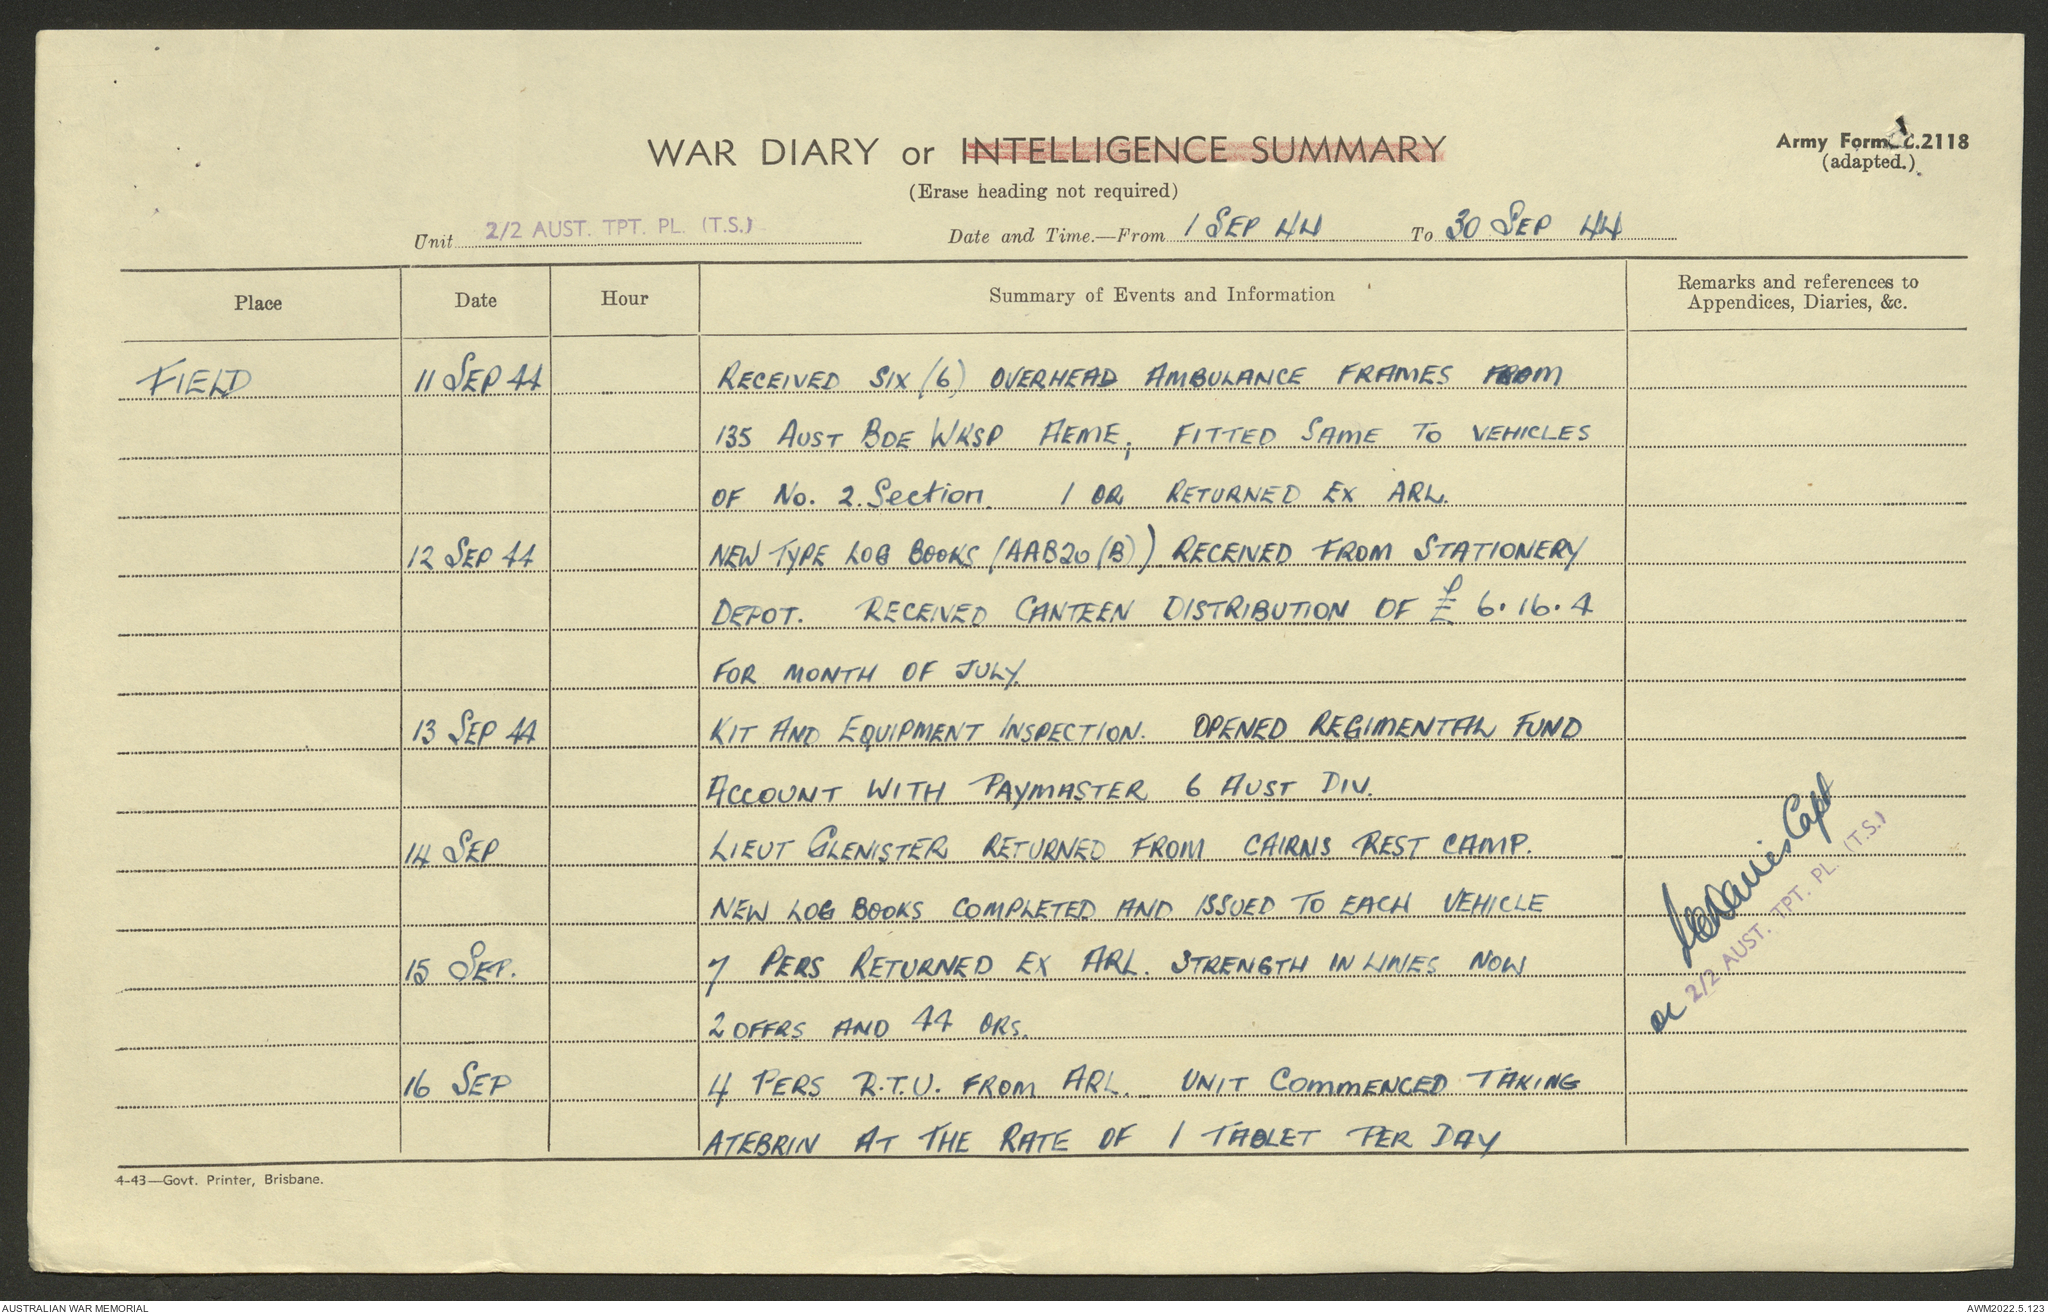 WAR DIARY or INTELLIGENCE SUMMARY
(Erase heading not required)
Army Form C.2118
(adapted.)
Unit 2/2 AUST. TPT. PL. (T.S.)
Date and Time.—From 1 SEP 44 To 30 SEP 44
Place Date Hour Summary of Events and Information Remarks and references to
Appendices, Diaries, &c.
FIELD 11 SEP 44 RECEIVED SIX (6) OVERHEAD AMBULANCE FRAMES FROM
135 AUST BDE WKSP AEME, FITTED SAME TO VEHICLES
OF No. 2. Section. 1 OR RETURNED EX ARL.
12 SEP 44 NEW TYPE LOG BOOKS (AAB20(B)) RECEIVED FROM STATIONERY
DEPOT. RECEIVED CANTEEN DISTRIBUTION OF £ 6.16.4
FOR MONTH OF JULY
13 SEP 44 KIT AND EQUIPMENT INSPECTION. OPENED REGIMENTAL FUND
ACCOUNT WITH PAYMASTER 6 AUST DIV.
14 SEP LIEUT GLENISTER RETURNED FROM CAIRNS REST CAMP.
NEW LOG BOOKS COMPLETED AND ISSUED TO EACH VEHICLE
15 SEP. 7 PERS RETURNED EX ARL. STRENGTH IN LINES NOW
2 OFFRS AND 44 ORS.
16 SEP 4 PERS R.T.U. FROM ARL. UNIT COMMENCED TAKING
ATEBRIN AT THE RATE OF 1 TABLET PER DAY
Davies Capt
OC 2/2 AUST. TPT. PL. (T.S.)
4-43—Govt. Printer, Brisbane.
AUSTRALIAN WAR MEMORIAL
AWM2022.5.123